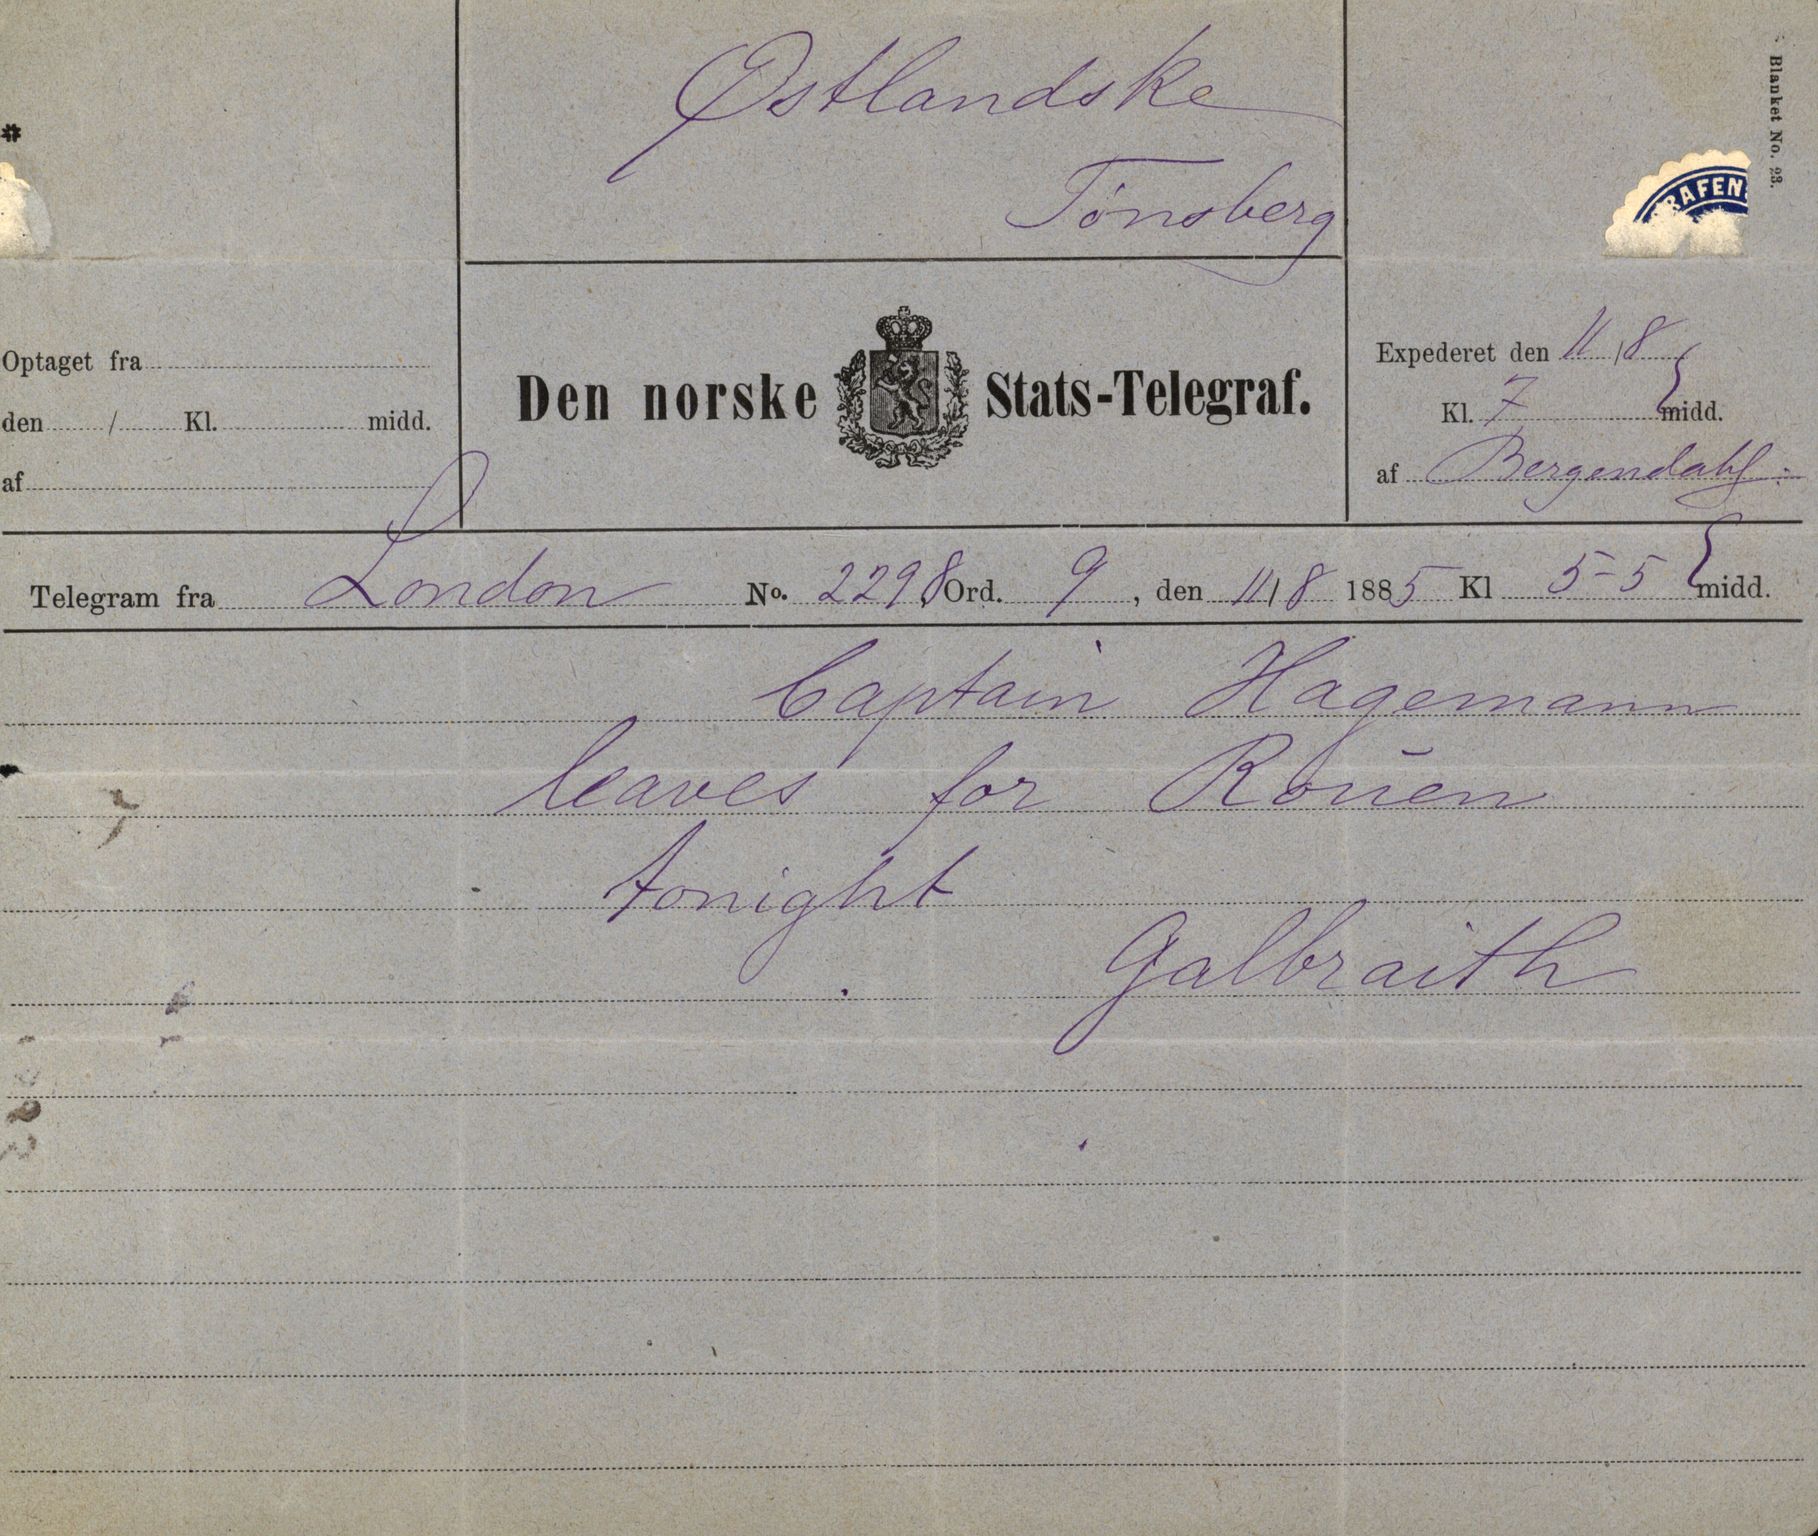 Østlandske
Tønsberg
Blanket No. 23.
RAFEN
Optaget fra
den / Kl. midd.
af
Den norske Stats-Telegraf.
Expederet den 11/8
Kl. 7 midd.
af Bergendahl
Telegram fra London No. 2298 Ord. 9, den 11/8 1885 Kl 5-5 midd.
Captain Hagemann
leaves for Rouen
tonight
Galbraith